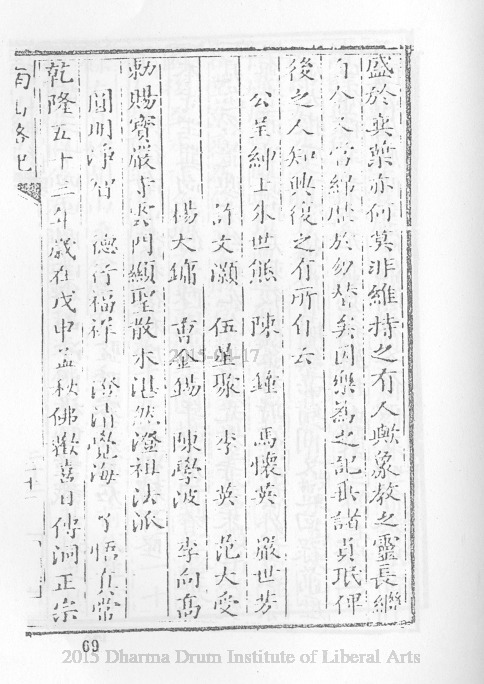 盛於奕葉亦何莫非維持之有人歟象教之靈長繼
自今又當綿歷於勿替矣因樂為之記垂諸貞珉俾
後之人知興復之有所自云
公呈紳士朱世熊 陳鐘 馬懷英 嚴世芳
許文灝 伍星聚 李英 范大受
楊大鏞 曹金錫 陳學波 李向高
勅賜寶嚴寺雲門顯聖散木湛然澄祖法派
圓明淨智 德行福祥 澄清覺海 了悟真常
乾隆五十三年歲在戊申孟秋佛歡喜日傳洞正宗
南山略記
三十一
69
2015-04-17
2015 Dharma Drum Institute of Liberal Arts